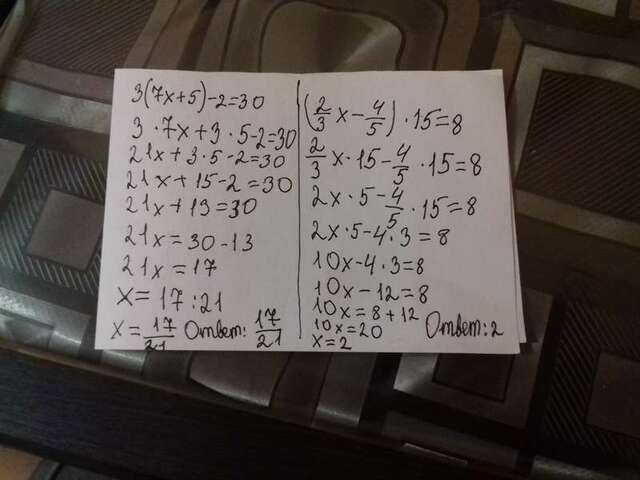 3(7x+5)-2=30
3·7x+3·5-2=30
21x+3·5-2=30
21x+15-2=30
21x+13=30
21x=30-13
21x=17
x=17:21
x=17/21 Ответ: 17/21
(2/3x-4/5)·15=8
2/3x·15-4/5·15=8
2x·5-4/5·15=8
2x·5-4·3=8
10x-4·3=8
10x-12=8
10x=8+12
10x=20
x=2 Ответ: 2